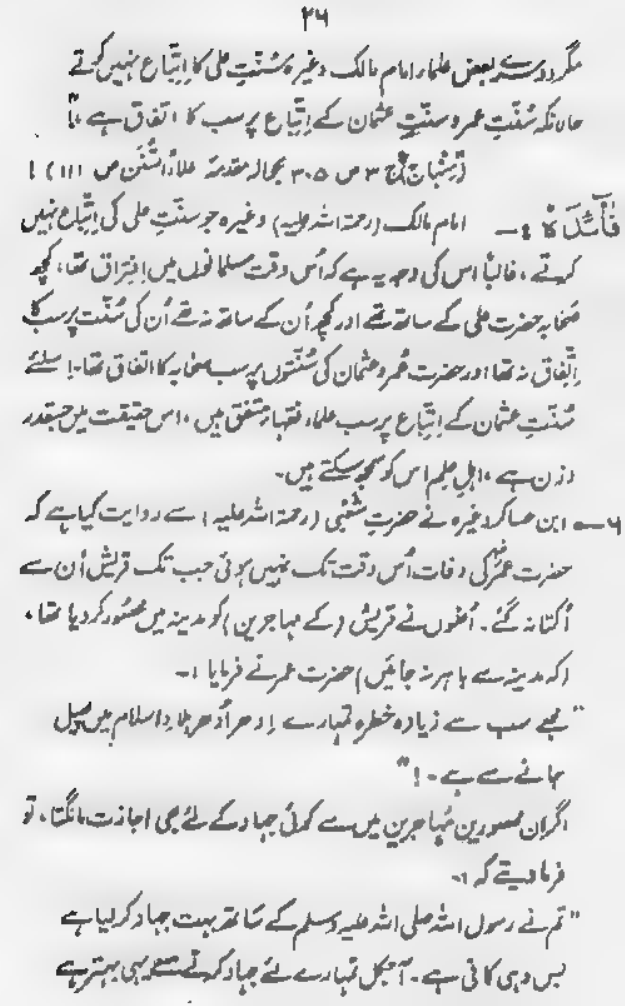 ۳۶
مگر دوسرے بعض علماء امام مالک وغیرہ سُنّتِ علی کا اِتّباع نہیں کرتے
حالانکہ سُنّتِ عمر و سنّتِ عثمان کے اِتّباع پر سب کا اتفاق ہے ۔"
ج ۳ ص ۳۰۵ بحوالہ مقدمہ اعلاء السُّنَن ص ۱۱۱) !
فَائدَہ :۔ امام مالک (رحمۃ اللہ علیہ) وغیرہ جو سنّتِ علی کی اِتّباع نہیں
کرتے ، غالباً اس کی وجہ یہ ہے کہ اُس وقت مسلمانوں میں اِفتِراق تھا ، کچھ
صحابہ حضرت علی کے ساتھ تھے اور کچھ اُن کے ساتھ نہ تھے اُن کی سُنّت پر سب کا
اِتّفاق نہ تھا اور حضرت عُمر و عثمان کی سُنّتوں پر سب صحابہ کا اتفاق تھا۔ اسلئے
سُنّتِ عثمان کے اِتّباع پر سب علماء فقہاء متفق ہیں ، اس حقیقت میں جسقدر
وزن ہے ، اہلِ علم اس کو سمجھ سکتے ہیں۔
۶۔ ابن عساکر وغیرہ نے حضرتِ شَعْبی (رحمۃ اللہ علیہ) سے روایت کیا ہے کہ
حضرت عمرؓ کی وفات اُس وقت تک نہیں ہوئی جب تک قریش اُن سے
اُکتا نہ گئے ۔ اُنھوں نے قریش (کے مہاجرین) کو مدینہ میں محصُور کر دیا تھا ،
(کہ مدینہ سے باہر نہ جائیں) حضرت عمر نے فرمایا :۔
"مجھے سب سے زیادہ خطرہ تمہارے اِدھر اُدھر بلادِ اسلام میں پھیل
جانے سے ہے ۔ !"
اگر ان محصورین مُہاجرین میں سے کوئی جہاد کے لئے بھی اجازت مانگتا ، تو
فرما دیتے کہ :۔
"تم نے رسول اللہ صلی اللہ علیہ وسلم کے ساتھ بہت جہاد کر لیا ہے
بس وہی کافی ہے ۔ آجکل تمہارے لئے جہاد کرنے سے یہی بہتر ہے